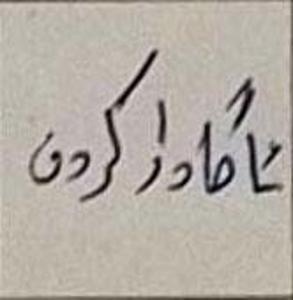 ئاگادار کردن